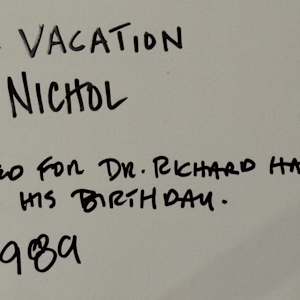 VACATION
NICHOL
FOR DR. RICHARD HA
HIS BIRTHDAY.
989